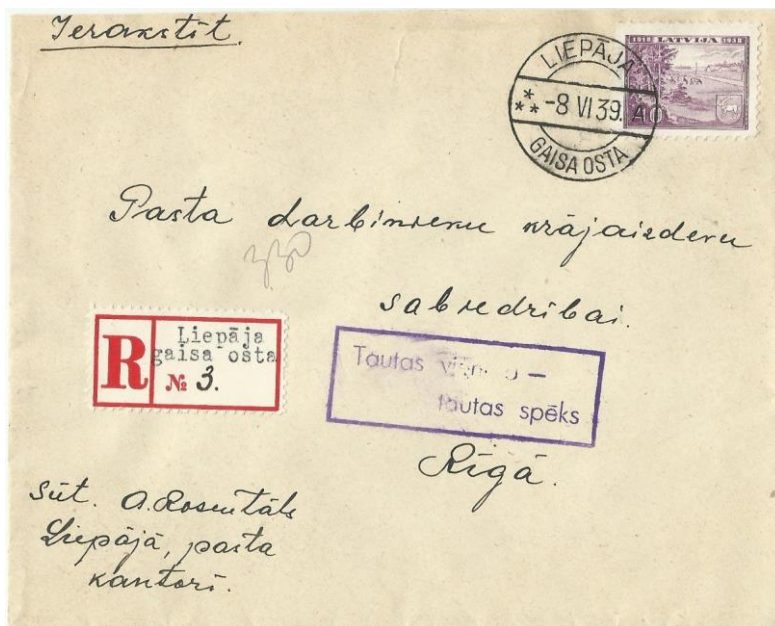 Ierakstīt.
1918 LATVIJA 1938
40
LIEPĀJA
-8 VI 39.
GAISA OSTA
Pasta darbinieku krājaizdevu
3,30
sabiedrībai.
R
Liepāja
gaisa osta
№ 3.
Tautas –
tautas spēks
Rīgā.
Sūt. A. Rosentāls
Liepājā, pasta
kantorī.